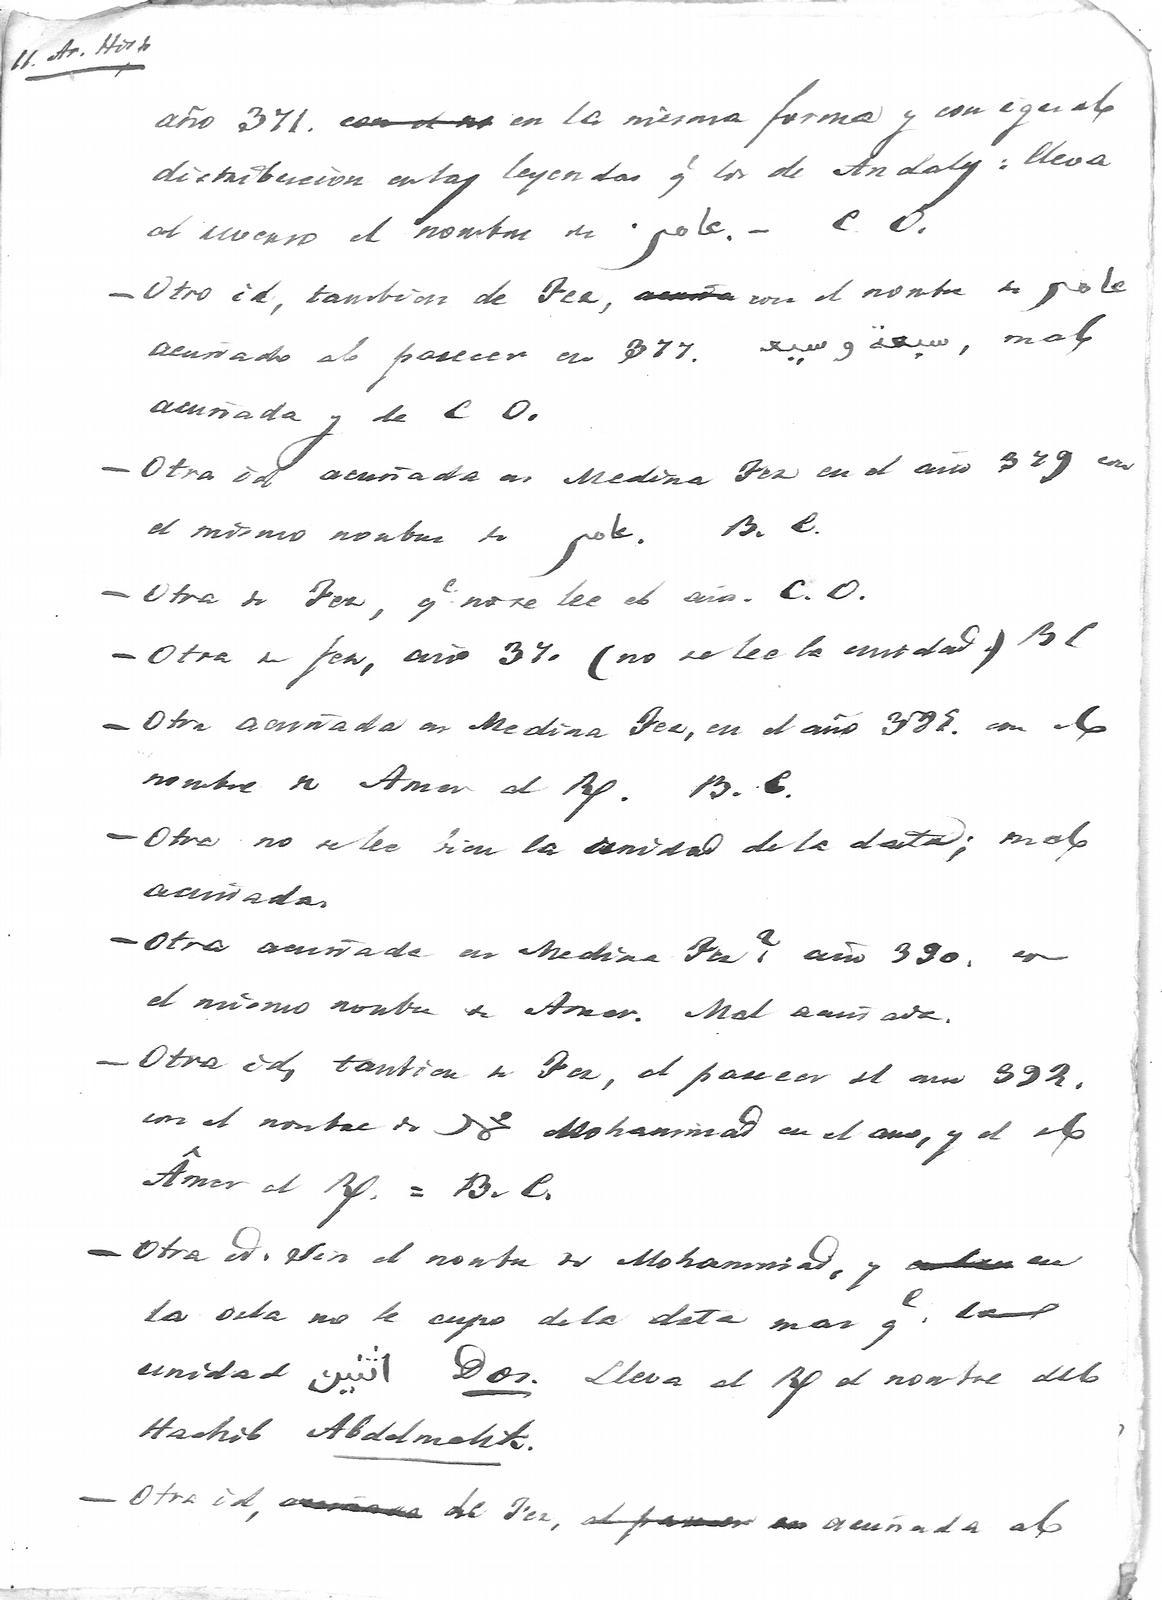 11. Ar. Hisp
año 371. en la misma forma y con igual
distribucion en las leyendas q.e los de Andaly: lleva
al reverso el nombre de عامر. – C. O.
– Otro id, tambien de Fez, acuña con el nombre de عامر
acuñado al parecer en 377. سبعة وسبع, mal
acuñada y de C O.
– Otra id acuñada en Medina Fez en el año 379 con
el mismo nombre de عامر. B. C.
– Otra de Fez, q.e no se lee el año. C. O.
– Otra de fez, año 37. (no se lee la unidad.) B C
– Otra acuñada en Medina Fez, en el año con el
nombre de Amer al R/. B. C.
– Otra no se lee bien la unidad de la data; mal
acuñada.
– Otra acuñada en Medina Fez? año 390. con
el mismo nombre de Amer. Mal acuñada.
– Otra id, tambien de Fez, al parecer del año 392.
con el nombre de محمد Mohammad en el anv, y el de
Âmer al R/. = B. C.
– Otra id. Sin el nombre de Mohammad, y en
la orla no le cupo de la data mas q.e la
unidad اثنين Dos. Lleva al R/ el nombre del
Hachib Abdelmelik.
– Otra id, acuñada de Fez, al parecer en acuñada al